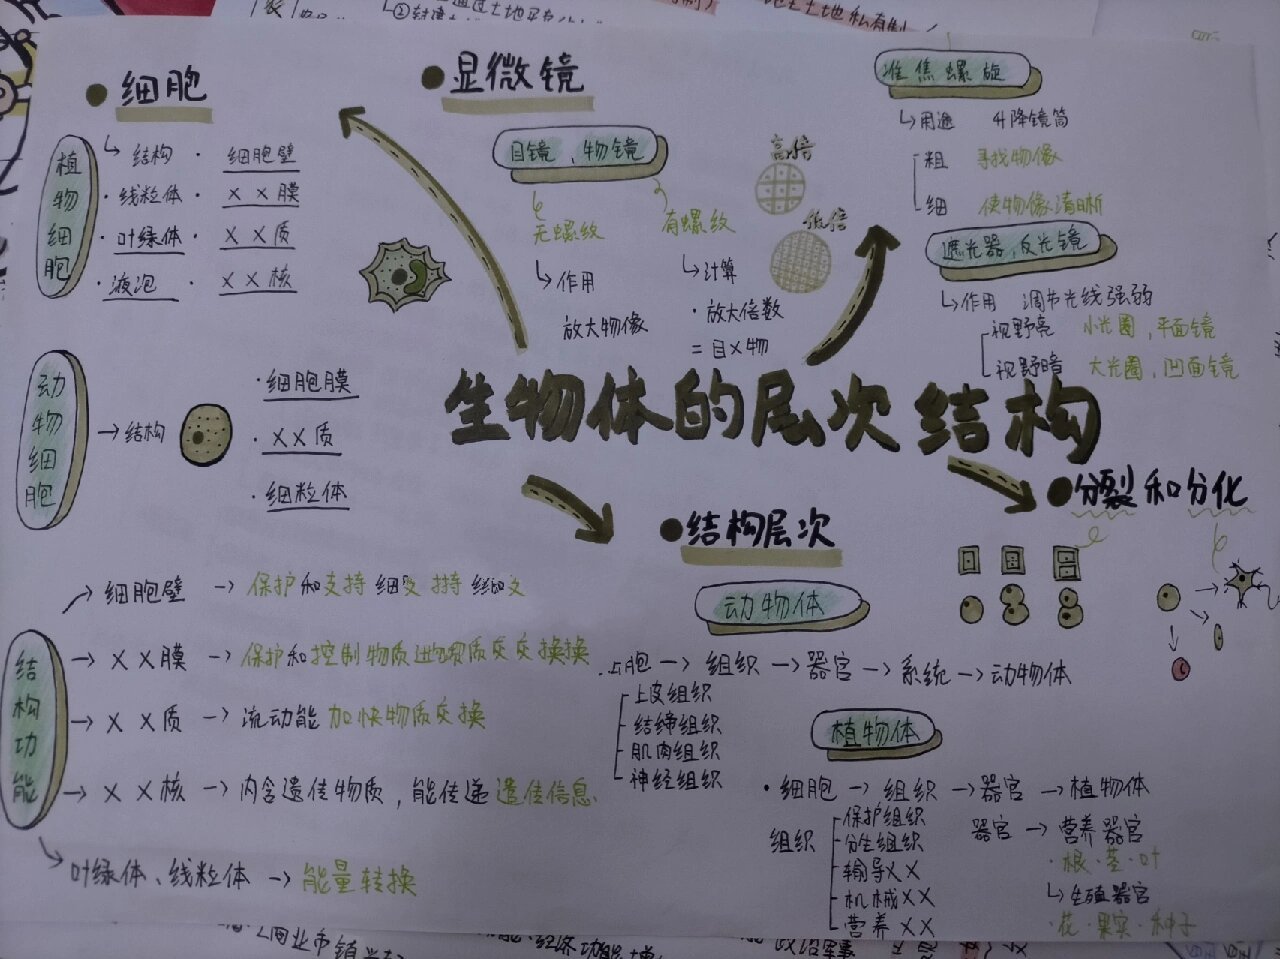 细胞
植物细胞
结构·细胞壁
·线粒体·××膜
·叶绿体·××质
·液泡·××核
动物细胞
→结构
·细胞膜
·××质
·细粒体
结构功能
→细胞壁→保护和支持
→××膜→保护和控制物质
→××质→流动能加快物质交换
→××核→内含遗传物质,能传递遗传信息
叶绿体、线粒体→能量转换
显微镜
目镜、物镜
无螺纹
有螺纹
作用
放大物像
计算
·放大倍数
=目×物
高倍
低倍
准焦螺旋
用途 升降镜筒
粗 寻找物像
细 使物像清晰
遮光器,反光镜
作用 调节光线强弱
视野亮 小光圈,平面镜
视野暗 大光圈,凹面镜
生物体的层次结构
分裂和分化
结构层次
动物体
胞→组织→器官→系统→动物体
上皮组织
结缔组织
肌肉组织
神经组织
植物体
·细胞→组织→器官→植物体
组织
保护组织
分生组织
输导××
机械××
营养××
器官→营养器官
·根·茎·叶
生殖器官
·花·果实·种子